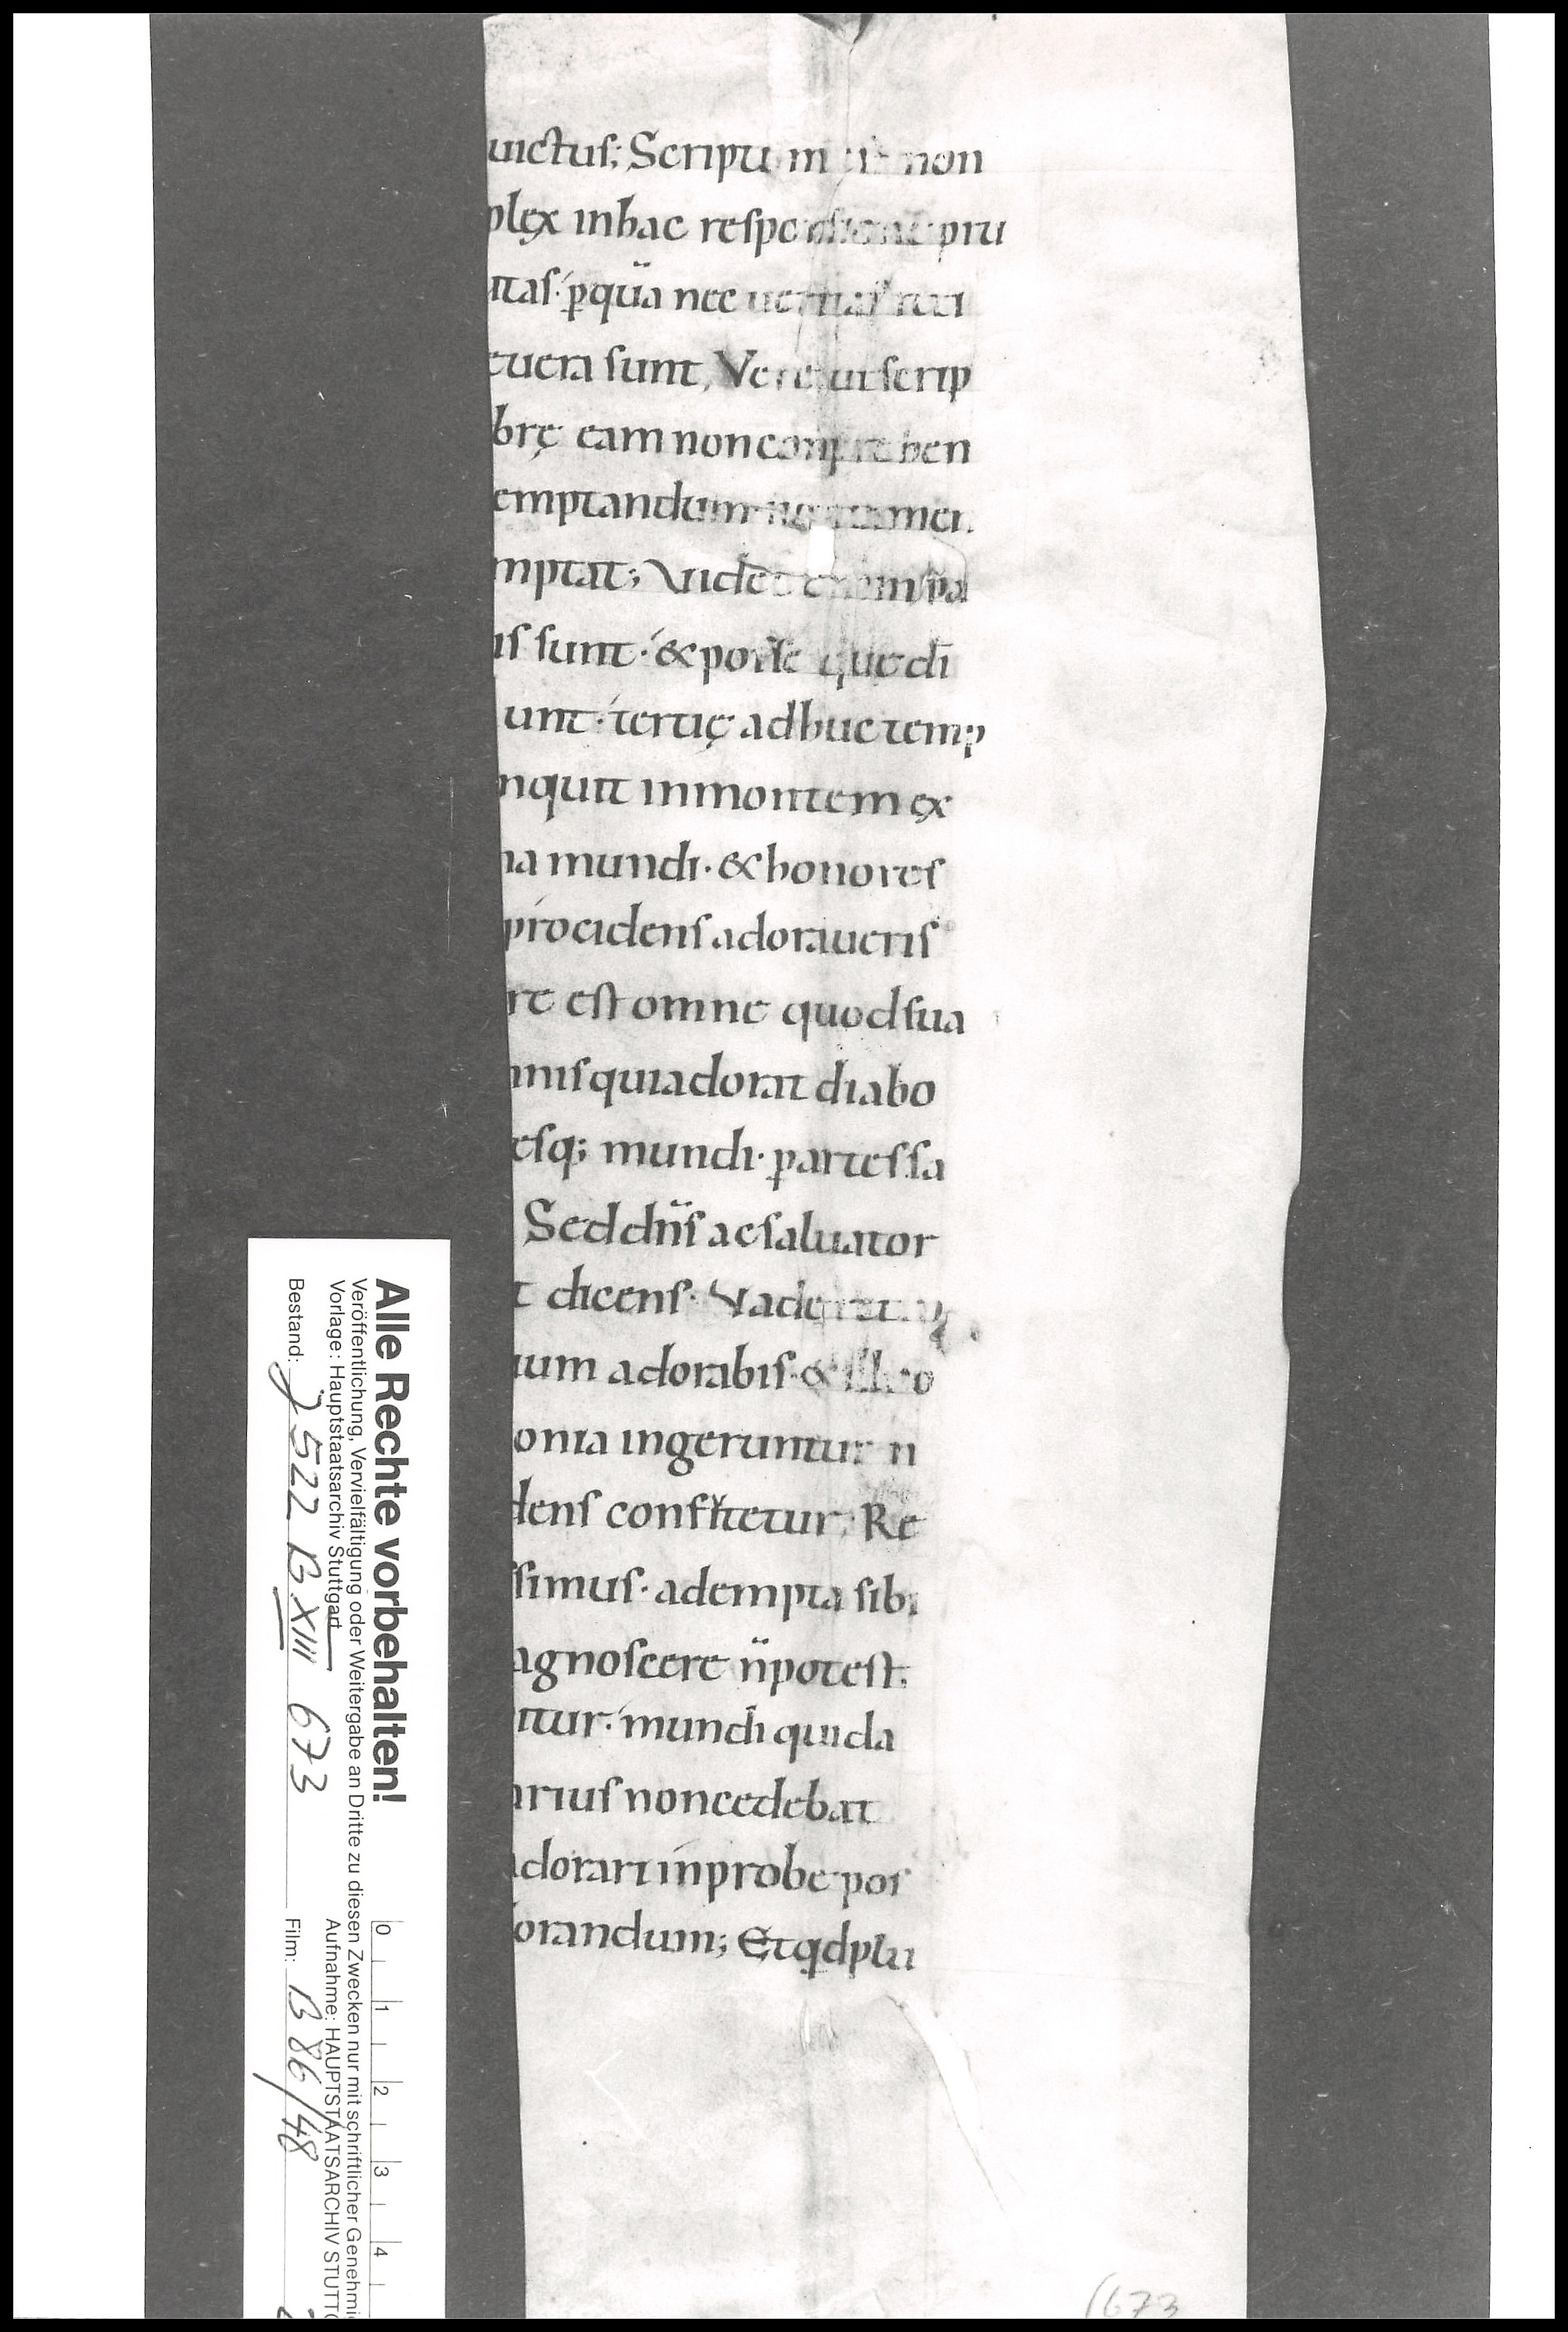 uictus; Scriptum non
plęx inhac responsione pru
itas· ꝑquā nec ueritas
euera sunt, Vere ut scrip
brę eam non conpre hen
emptandum
mptat; Vidℯ
is sunt· & posse que di
unt· tertię adhuc temp
nquit inmontem ex
na mundi· & honores
procidens adoraueris
re est omne quodsua
mnisquiadorat diabo
esq; mundi· partessa
Sed dn̄s acsaluator
t dicens· Vade
uum adorabis· & illi so
onia ingeruntur n
dens confitetur; Re
ssimus· adempta sibi
agnoscere n̄potest,
itur· mundi quida
arius noncedebat
adorari inprobe pos
orandum; Etqđplu
(673
Alle Rechte vorbehalten!
Veröffentlichung, Vervielfältigung oder Weitergabe an Dritte zu diesen Zwecken nur mit schriftlicher Genehmi
Vorlage: Hauptstaatsarchiv Stuttgart Aufnahme: HAUPTSTAATSARCHIV STUTTG
Bestand: J 522 B.XIII 673 Film: B 86/48
0 1 2 3 4